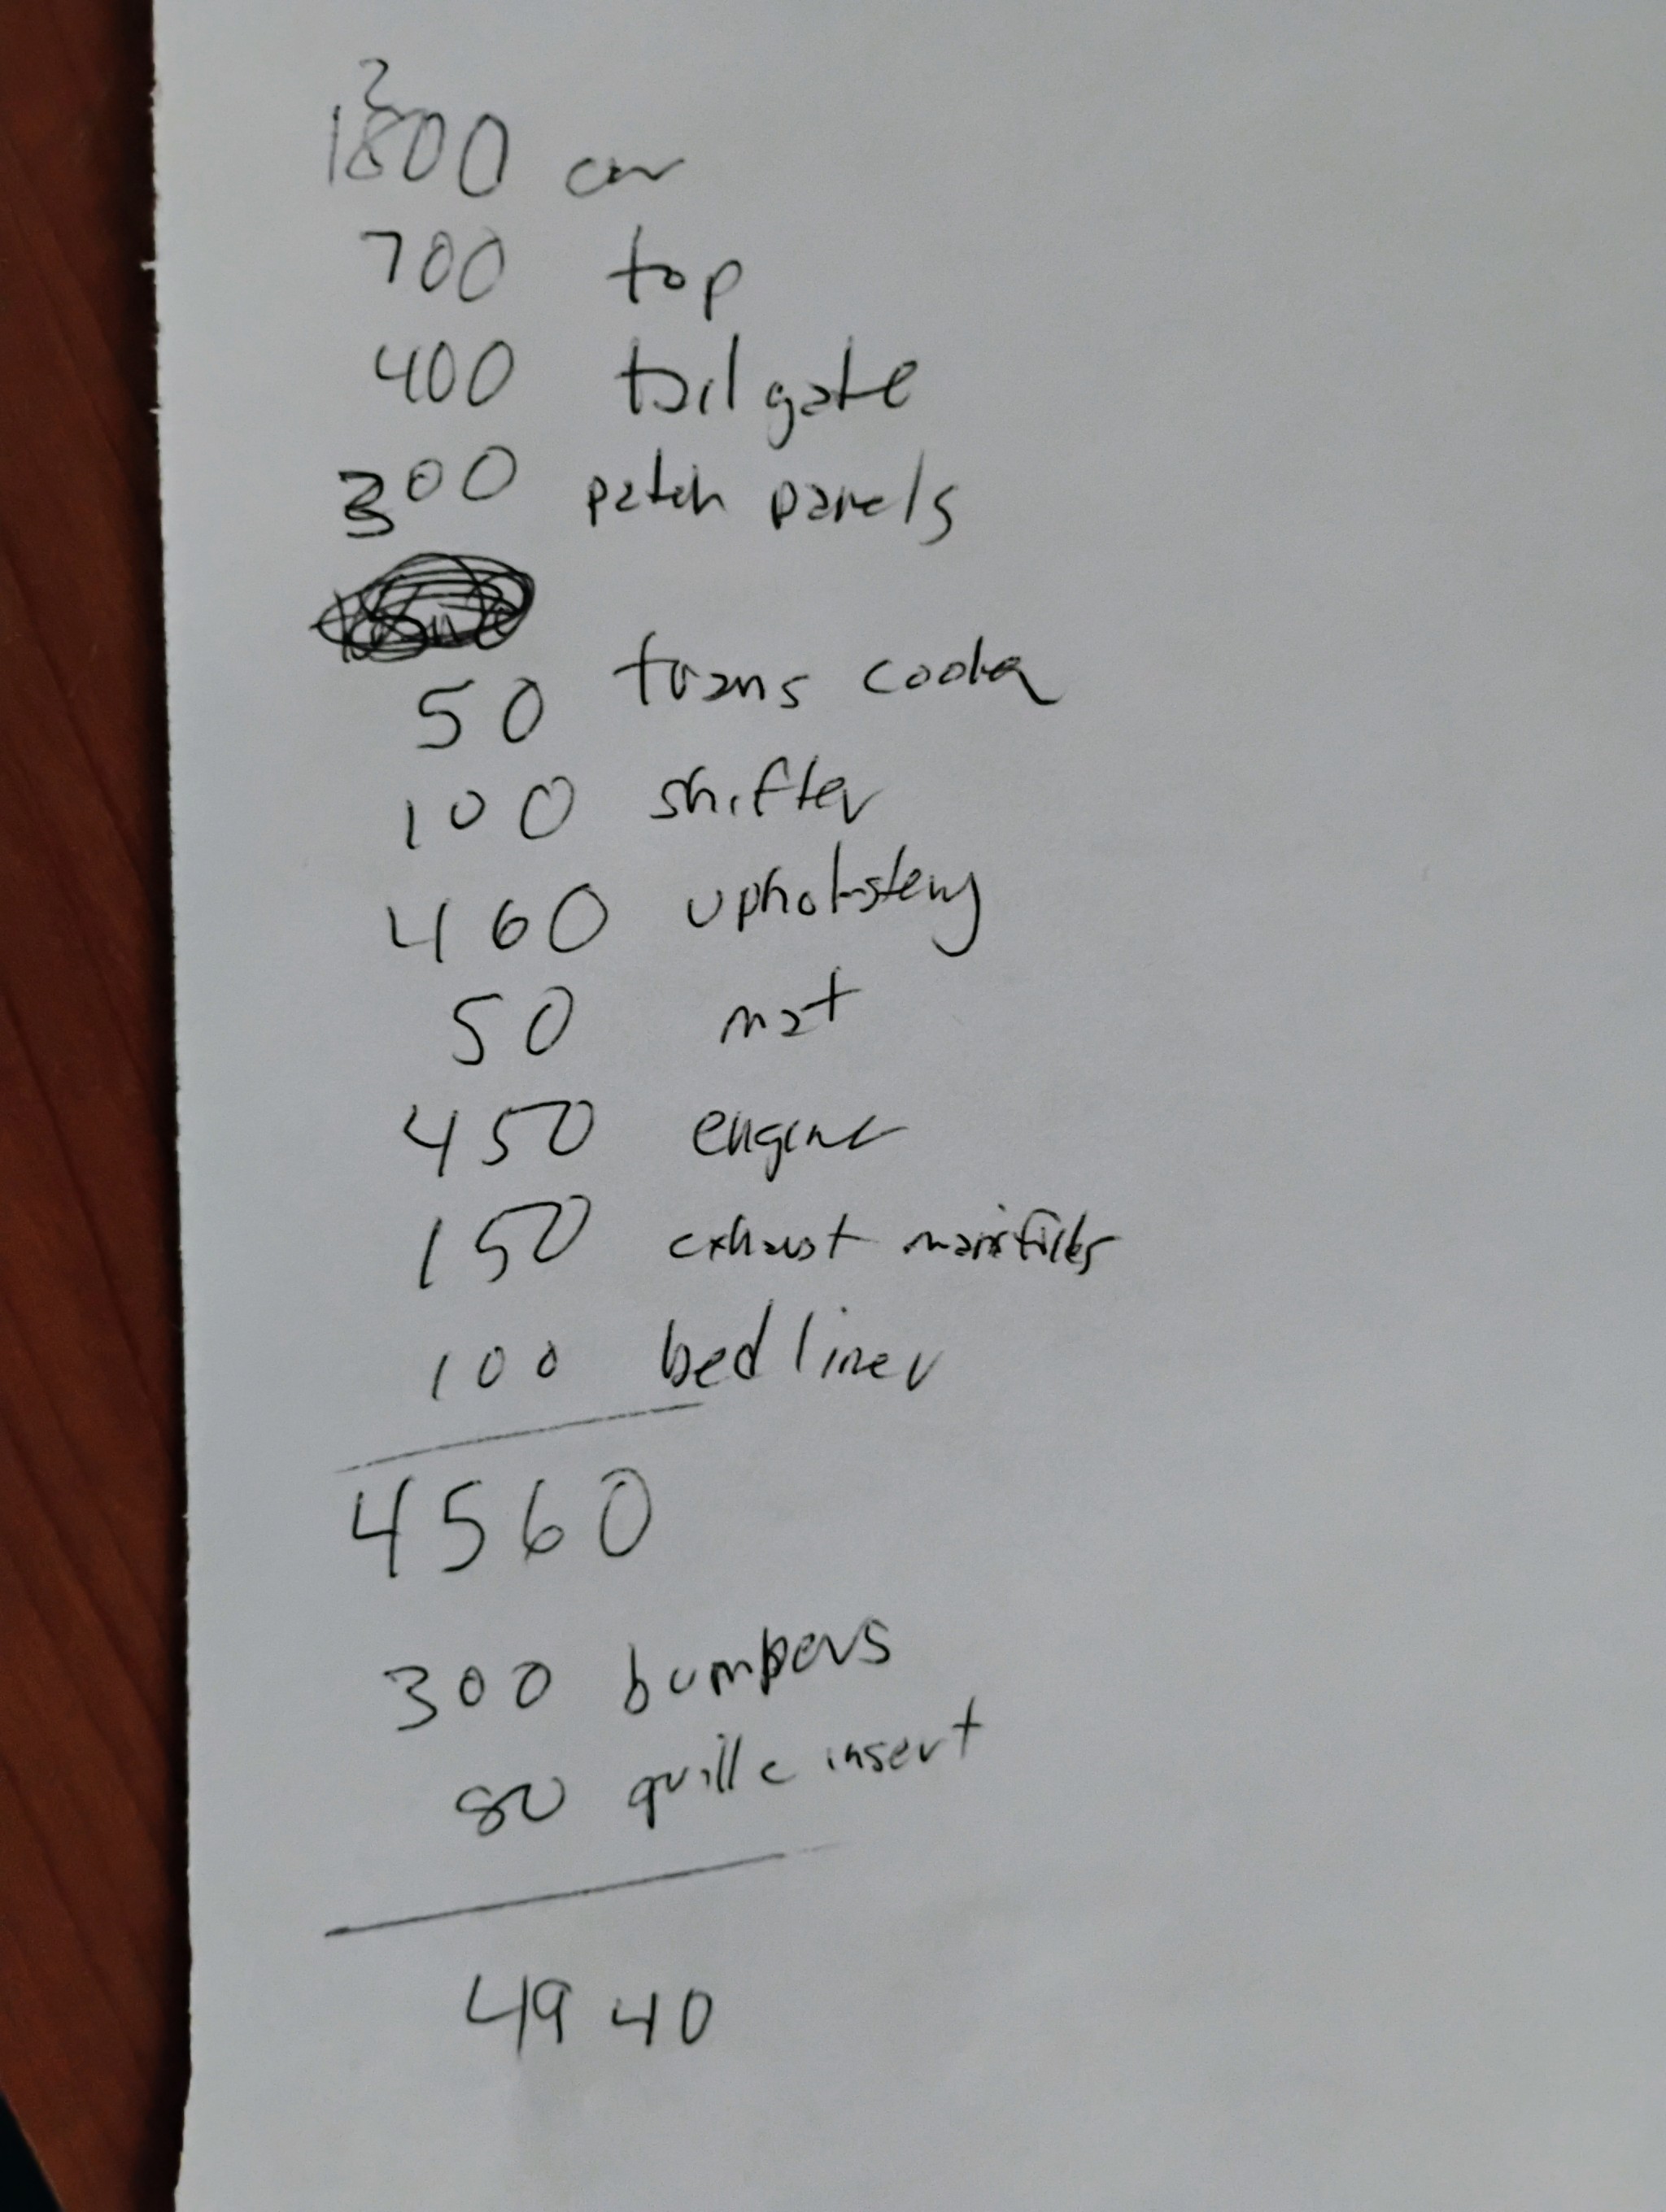 2
1800 car
700 top
400 tailgate
300 patch panels
50 trans cooler
100 shifter
460 upholstery
50 mat
450 engine
150 exhaust manifolds
100 bed liner
4560
300 bumpers
80 grille insert
4940